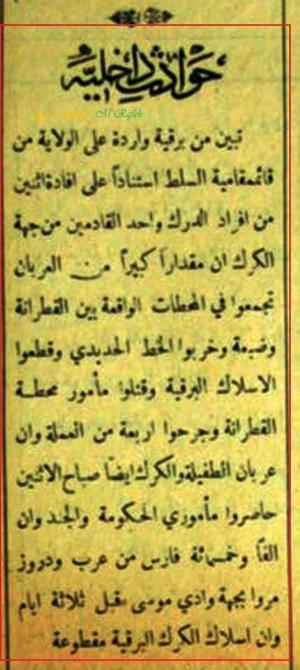 حوادث داخلية
M Rafieh
تبين من برقية واردة على الولاية من
قائممقامية السلط استناداً على افادة اثنين
من افراد الدرك واحد القادمين من جهة
الكرك ان مقداراً كبيراً من العربان
تجمعوا في المحطات الواقعة بين القطرانة
وضبعة وخربوا الخط الحديدي وقطعوا
الاسلاك البرقية وقتلوا مأمور محطة
القطرانة وجرحوا اربعة من العملة وان
عربان الطفيلة والكرك ايضاً صباح الاثنين
حاصروا مأموري الحكومة والجند وان
الفاً وخمسمائة فارس من عرب ودروز
مروا بجهة وادي موسى مقبل ثلاثة ايام
وان اسلاك الكرك البرقية مقطوعة